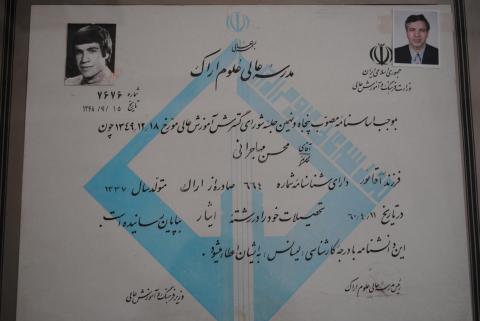 بسمه تعالی
مدرسه عالی علوم اراک
جمهوری اسلامی ایران
وزارت فرهنگ و آموزش عالی
شماره ۷۶۷۶
تاریخ ۱۳۶۸/۹/۱۵
بموجب اساسنامه مصوب پنجاه و نهمین جلسه شورای گسترش آموزش عالی مورخ ۱۳۴۹،۱۲،۱۸ چون
آقای محسن مهاجرانی
فرزند آقانور دارای شناسنامه شماره ۶۶۴ صادره از اراک متولد سال ۱۳۳۷
در تاریخ ۶۰/۴/۱۱ تحصیلات خود را در رشته ایثار بپایان رسانیده است
این دانشنامه با درجه کارشناسی (لیسانس) بایشان اعطاء میشود .
رئیس مدرسه عالی علوم اراک
وزیر فرهنگ و آموزش عالی